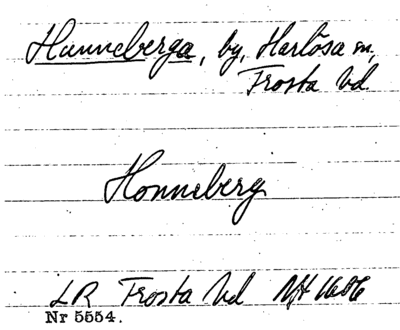 Hunneberga, by, Harlösa sn,
Frosta hd
Honneberg
LR Frosta hd 1606
Nr 5554.